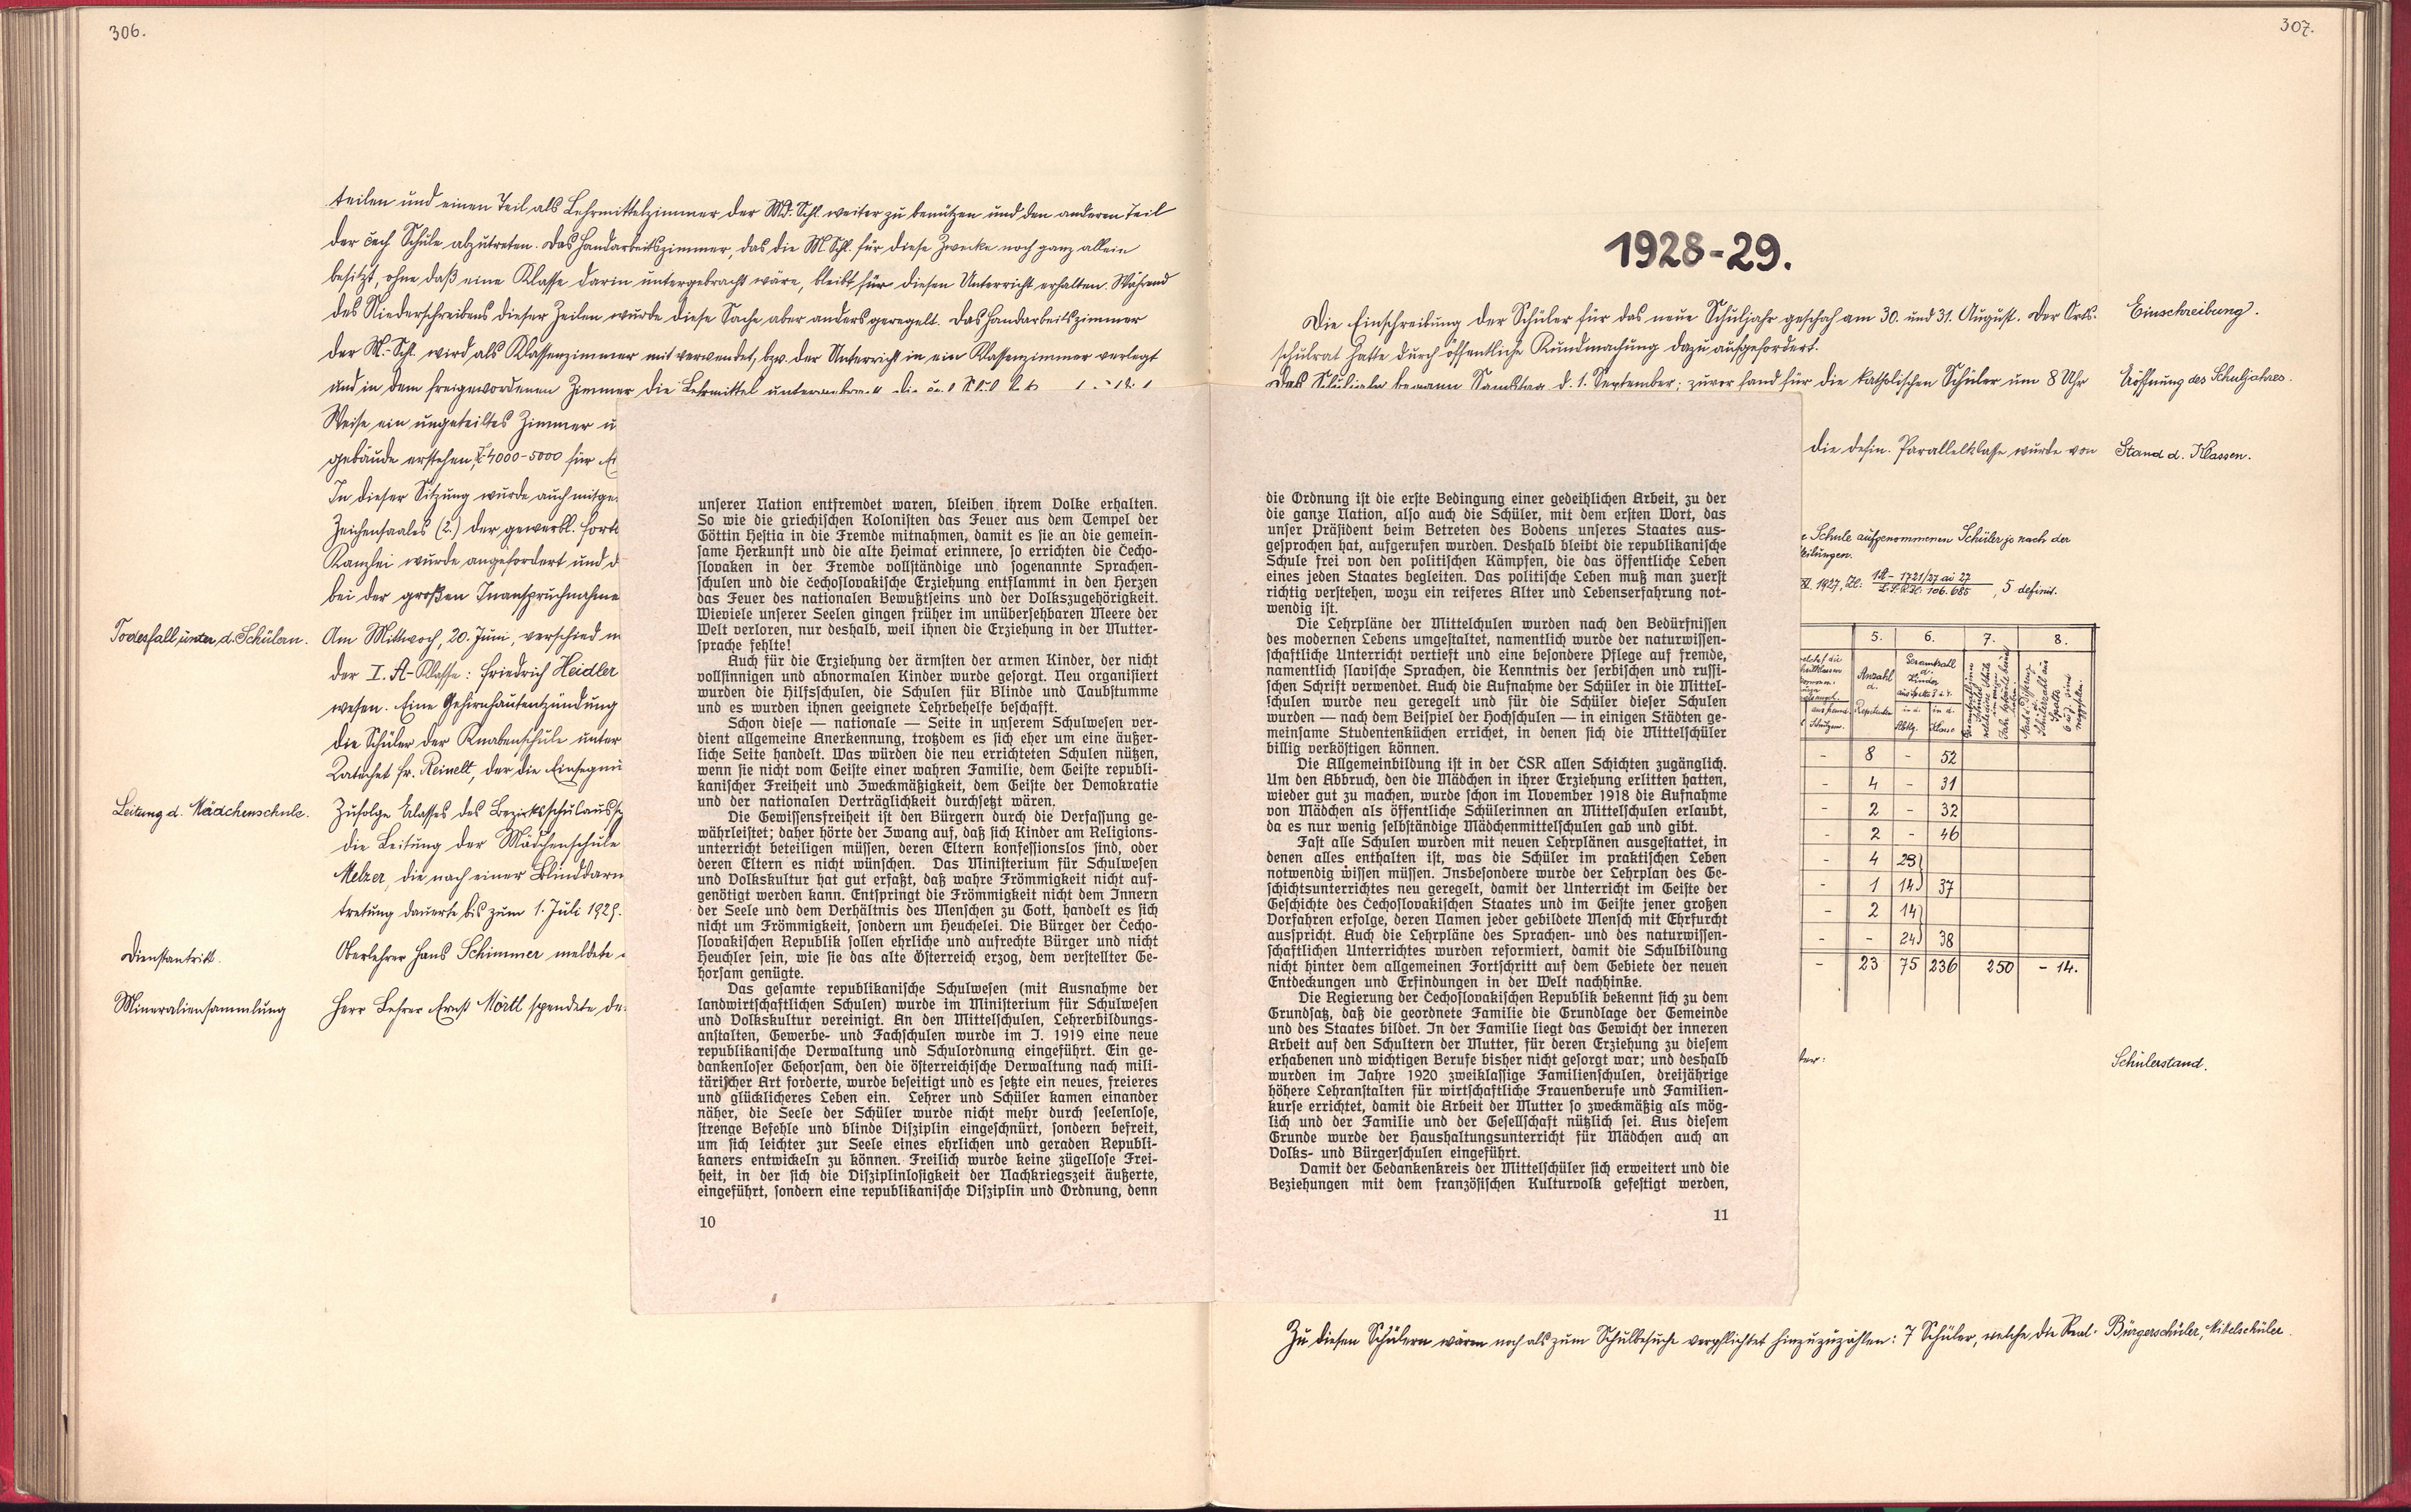 306.
teilen und einen Teil als Lehrmittelzimmer der Md. Schl. weiter zu benützen und den anderen Teil
der čech Schule abzutreten. Das Handarbeitszimmer, das die M Schl. für diese Zwecke noch ganz allein
besitzt, ohne daß eine Klasse darin untergebracht wäre, bleibt für diesen Unterricht erhalten. Während
des Niederschreibens dieser Zeilen wurde diese Sache aber anders geregelt. Das Handarbeitszimmer
der M.-Schl. wird als Klassenzimmer mit verwendet, bzw. der Unterricht in ein Klassenzimmer verlegt
und in dem freigewordenen Zimmer die Lehrmittel untergebracht
Weise ein ungeteiltes Zimmer
gebäude erstehen, 4000-5000 für
In dieser Sitzung wurde auch mitge
Zeichensaales (2.) der gewerbl. Fort
Kanzlei wurde angefordert und
bei der großen Inanspruchnahme
Todesfall unter d. Schülern. Am Mittwoch, 20. Juni, verschied
der I. A-Klasse: Friedrich Heidler
wesen. Eine Gehirnhautentzündung
die Schüler der Knabenschule unter
Katechet Fr. Reinelt, der die Einsegnu
Leitung d. Mädchenschule. Zufolge Erlasses des Bezirksschulauss
die Leitung der Mädchenschule
Melzer, die nach einer Blinddarm
tretung dauerte bis zum 1. Juli 1929.
Dienstantritt. Oberlehrer Hans Schimmer meldete
Mineraliensammlung Herr Lehrer Ernst Mörtl spendete de
unserer Nation entfremdet waren, bleiben ihrem Volke erhalten.
So wie die griechischen Kolonisten das Feuer aus dem Tempel der
Göttin Hestia in die Fremde mitnahmen, damit es sie an die gemein-
same Herkunft und die alte Heimat erinnere, so errichten die Čecho-
slovaken in der Fremde vollständige und sogenannte Sprachen-
schulen und die čechoslovakische Erziehung entflammt in den Herzen
das Feuer des nationalen Bewußtseins und der Volkszugehörigkeit.
Wieviele unserer Seelen gingen früher im unübersehbaren Meere der
Welt verloren, nur deshalb, weil ihnen die Erziehung in der Mutter-
sprache fehlte!
Auch für die Erziehung der ärmsten der armen Kinder, der nicht
vollsinnigen und abnormalen Kinder wurde gesorgt. Neu organisiert
wurden die Hilfsschulen, die Schulen für Blinde und Taubstumme
und es wurden ihnen geeignete Lehrbehelfe beschafft.
Schon diese — nationale — Seite in unserem Schulwesen ver-
dient allgemeine Anerkennung, trotzdem es sich eher um eine äußer-
liche Seite handelt. Was würden die neu errichteten Schulen nützen,
wenn sie nicht vom Geiste einer wahren Familie, dem Geiste republi-
kanischer Freiheit und Zweckmäßigkeit, dem Geiste der Demokratie
und der nationalen Verträglichkeit durchsetzt wären.
Die Gewissensfreiheit ist den Bürgern durch die Verfassung ge-
währleistet; daher hörte der Zwang auf, daß sich Kinder am Religions-
unterricht beteiligen müssen, deren Eltern konfessionslos sind, oder
deren Eltern es nicht wünschen. Das Ministerium für Schulwesen
und Volkskultur hat gut erfaßt, daß wahre Frömmigkeit nicht auf-
genötigt werden kann. Entspringt die Frömmigkeit nicht dem Innern
der Seele und dem Verhältnis des Menschen zu Gott, handelt es sich
nicht um Frömmigkeit, sondern um Heuchelei. Die Bürger der Čecho-
slovakischen Republik sollen ehrliche und aufrechte Bürger und nicht
Heuchler sein, wie sie das alte Österreich erzog, dem verstellter Ge-
horsam genügte.
Das gesamte republikanische Schulwesen (mit Ausnahme der
landwirtschaftlichen Schulen) wurde im Ministerium für Schulwesen
und Volkskultur vereinigt. An den Mittelschulen, Lehrerbildungs-
anstalten, Gewerbe- und Fachschulen wurde im J. 1919 eine neue
republikanische Verwaltung und Schulordnung eingeführt. Ein ge-
dankenloser Gehorsam, den die österreichische Verwaltung nach mili-
tärischer Art forderte, wurde beseitigt und es setzte ein neues, freieres
und glücklicheres Leben ein. Lehrer und Schüler kamen einander
näher, die Seele der Schüler wurde nicht mehr durch seelenlose,
strenge Befehle und blinde Disziplin eingeschnürt, sondern befreit,
um sich leichter zur Seele eines ehrlichen und geraden Republi-
kaners entwickeln zu können. Freilich wurde keine zügellose Frei-
heit, in der sich die Disziplinlosigkeit der Nachkriegszeit äußerte,
eingeführt, sondern eine republikanische Disziplin und Ordnung, denn
10
307.
1928-29.
Die Einschreibung der Schüler für das neue Schuljahr geschah am 30. und 31. August. Der Orts- Einschreibung.
schulrat hatte durch öffentliche Kundmachung dazu aufgefordert.
Das Schuljahr begann Samstag d. 1. September; zuvor fand für die katholischen Schüler um 8 Uhr Eröffnung des Schuljahres.
die defin. Parallelklasse wurde von Stand d. Klassen.
Schule aufgenommenen Schüler je nach der
eilungen.
1927, Zl. 1A-1721/27 ai 27 / L.S.R. Zl. 106.685, 5 definit.
5. 6. 7. 8.
Anzahl d. Repetenten
Gesamtzahl d. Kinder aus Spalte 3 u. 4.
in d. Abtlg. in d. Klasse
- 8 - 52
- 4 - 31
- 2 - 32
- 2 - 46
- 4 23
- 1 14 37
- 2 14
- - 24 38
- 23 75 236 250 - 14.
Schülerstand.
die Ordnung ist die erste Bedingung einer gedeihlichen Arbeit, zu der
die ganze Nation, also auch die Schüler, mit dem ersten Wort, das
unser Präsident beim Betreten des Bodens unseres Staates aus-
gesprochen hat, aufgerufen wurden. Deshalb bleibt die republikanische
Schule frei von den politischen Kämpfen, die das öffentliche Leben
eines jeden Staates begleiten. Das politische Leben muß man zuerst
richtig verstehen, wozu ein reiferes Alter und Lebenserfahrung not-
wendig ist.
Die Lehrpläne der Mittelchulen wurden nach den Bedürfnissen
des modernen Lebens umgestaltet, namentlich wurde der naturwissen-
schaftliche Unterricht vertieft und eine besondere Pflege auf fremde,
namentlich slavische Sprachen, die Kenntnis der serbischen und russi-
schen Schrift verwendet. Auch die Aufnahme der Schüler in die Mittel-
schulen wurde neu geregelt und für die Schüler dieser Schulen
wurden — nach dem Beispiel der Hochschulen — in einigen Städten ge-
meinsame Studentenküchen errichet, in denen sich die Mittelschüler
billig verköstigen können.
Die Allgemeinbildung ist in der ČSR allen Schichten zugänglich.
Um den Abbruch, den die Mädchen in ihrer Erziehung erlitten hatten,
wieder gut zu machen, wurde schon im November 1918 die Aufnahme
von Mädchen als öffentliche Schülerinnen an Mittelschulen erlaubt,
da es nur wenig selbständige Mädchenmittelschulen gab und gibt.
Fast alle Schulen wurden mit neuen Lehrplänen ausgestattet, in
denen alles enthalten ist, was die Schüler im praktischen Leben
notwendig wissen müssen. Insbesondere wurde der Lehrplan des Ge-
schichtsunterrichtes neu geregelt, damit der Unterricht im Geiste der
Geschichte des Čechoslovakischen Staates und im Geiste jener großen
Vorfahren erfolge, deren Namen jeder gebildete Mensch mit Ehrfurcht
ausspricht. Auch die Lehrpläne des Sprachen- und des naturwissen-
schaftlichen Unterrichtes wurden reformiert, damit die Schulbildung
nicht hinter dem allgemeinen Fortschritt auf dem Gebiete der neuen
Entdeckungen und Erfindungen in der Welt nachhinke.
Die Regierung der Čechoslovakischen Republik bekennt sich zu dem
Grundsatz, daß die geordnete Familie die Grundlage der Gemeinde
und des Staates bildet. In der Familie liegt das Gewicht der inneren
Arbeit auf den Schultern der Mutter, für deren Erziehung zu diesem
erhabenen und wichtigen Berufe bisher nicht gesorgt war; und deshalb
wurden im Jahre 1920 zweiklassige Familienschulen, dreijährige
höhere Lehranstalten für wirtschaftliche Frauenberufe und Familien-
kurse errichtet, damit die Arbeit der Mutter so zweckmäßig als mög-
lich und der Familie und der Gesellschaft nützlich sei. Aus diesem
Grunde wurde der Haushaltungsunterricht für Mädchen auch an
Volks- und Bürgerschulen eingeführt.
Damit der Gedankenkreis der Mittelschüler sich erweitert und die
Beziehungen mit dem französischen Kulturvolk gefestigt werden,
11
Zu diesen Schülern wären noch als zum Schulbesuche verpflichtet hinzuzuzählen: 7 Schüler, welche die Real- Bürgerschüler, Mittelschüler.